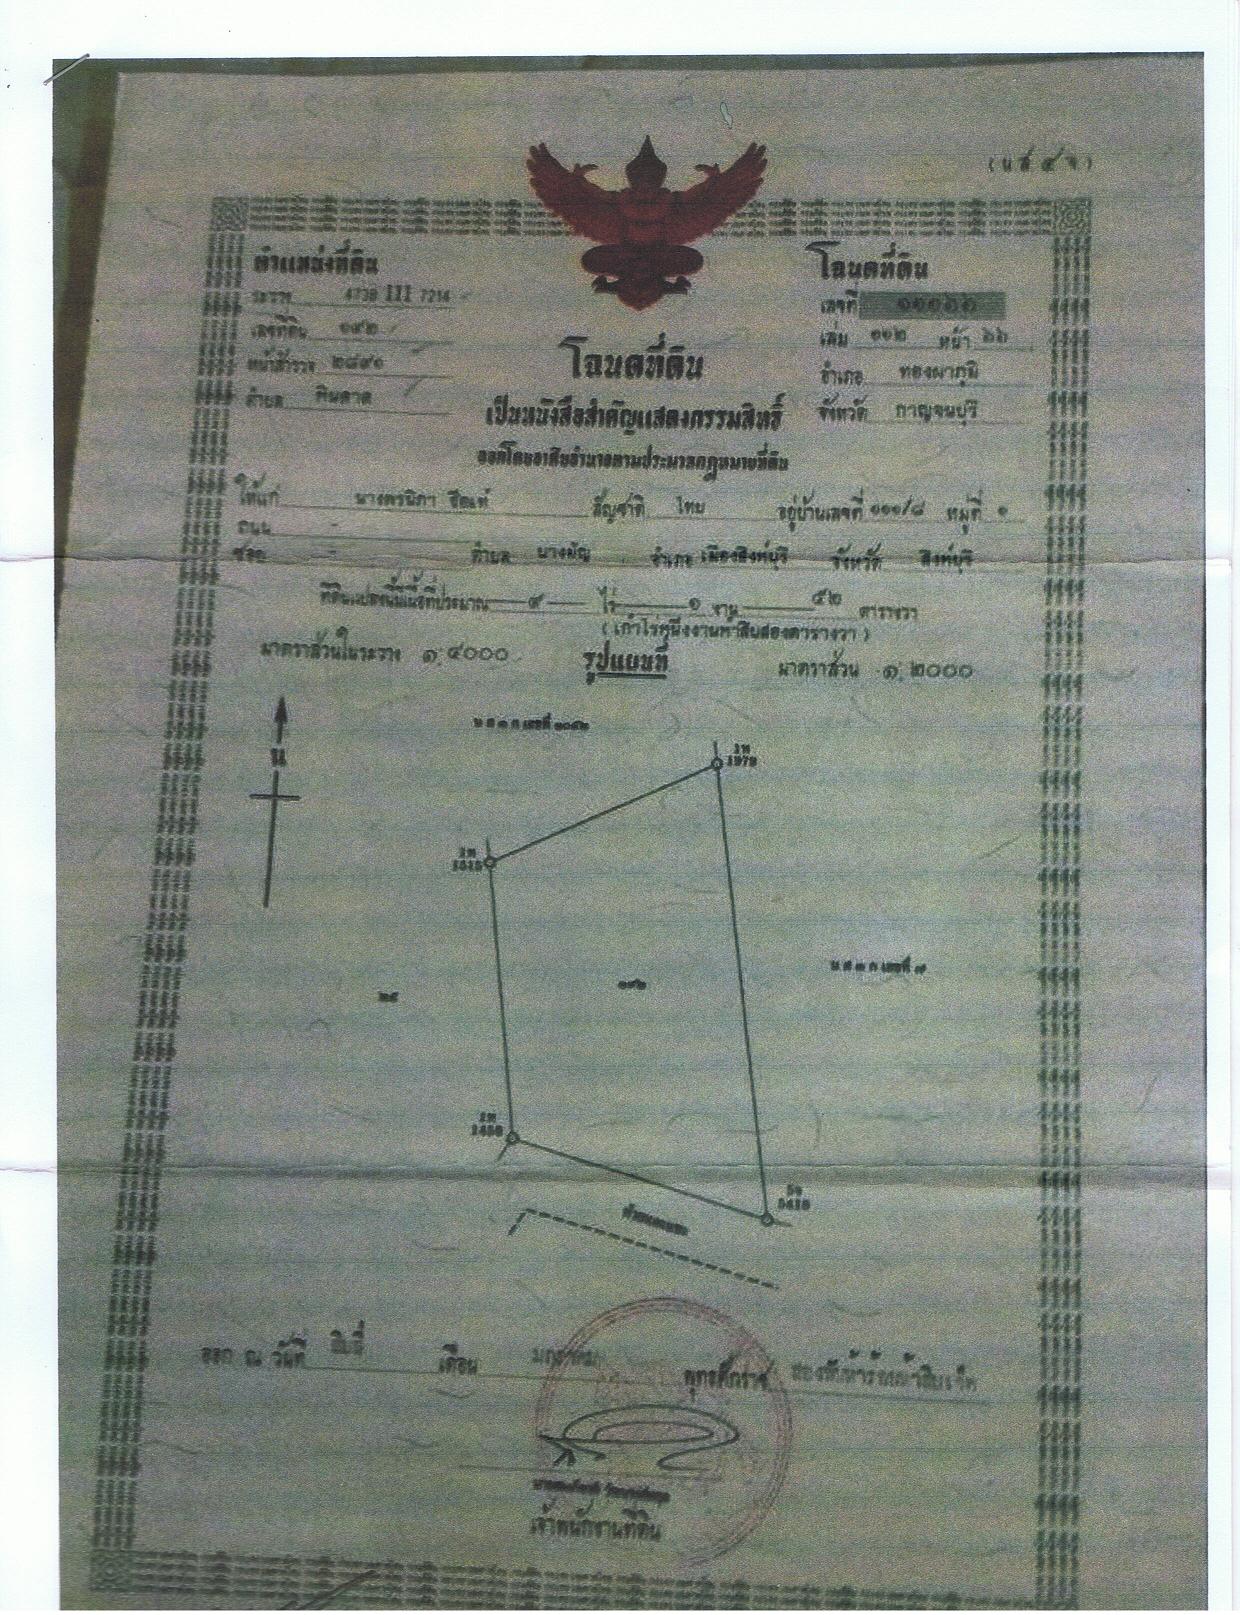 (น ส ๔ จ)
ตำแหน่งที่ดิน
ระวาง 4738 III 7214
เลขที่ดิน ๑๙๒
หน้าสำรวจ ๒๘๙๐
ตำบล หินดาด
โฉนดที่ดิน
เลขที่ ๑๑๐๖๖
เล่ม ๑๑๒ หน้า ๖๖
อำเภอ ทองผาภูมิ
จังหวัด กาญจนบุรี
โฉนดที่ดิน
เป็นหนังสือสำคัญแสดงกรรมสิทธิ์
ออกโดยอาศัยอำนาจตามประมวลกฎหมายที่ดิน
ให้แก่ สัญชาติ ไทย อยู่บ้านเลขที่ ๑๑๑/๘ หมู่ที่ ๑
ถนน
ซอย - ตำบล บางมัญ อำเภอ เมืองสิงห์บุรี จังหวัด สิงห์บุรี
ที่ดินแปลงนี้มีเนื้อที่ประมาณ ๙ ไร่ ๑ งาน ๕๒ ตารางวา
(เก้าไร่หนึ่งงานห้าสิบสองตารางวา)
มาตราส่วนในระวาง ๑:๔๐๐๐ รูปแผนที่ มาตราส่วน ๑:๒๐๐๐
น
น ส ๓ ก เลขที่
1979
น ส ๓ ก เลขที่ ๗
๒๕
๑๙๒
ออก ณ วันที่ สิบสี่ เดือน มกราคม พุทธศักราช สองพันห้าร้อยห้าสิบเจ็ด
เจ้าพนักงานที่ดิน